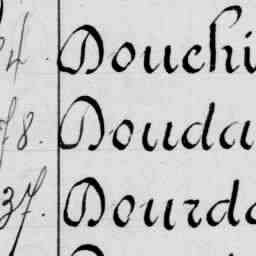 4. Douchi
78. Douda
37. Dourdo